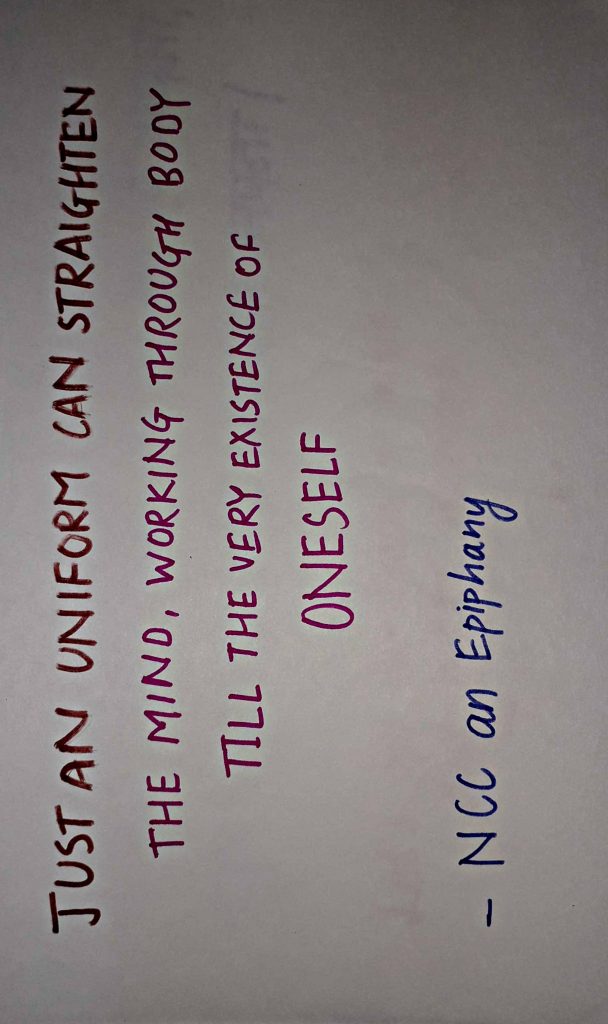 JUST AN UNIFORM CAN STRAIGHTEN
THE MIND, WORKING THROUGH BODY
TILL THE VERY EXISTENCE OF
ONESELF
- NCC an Epiphany